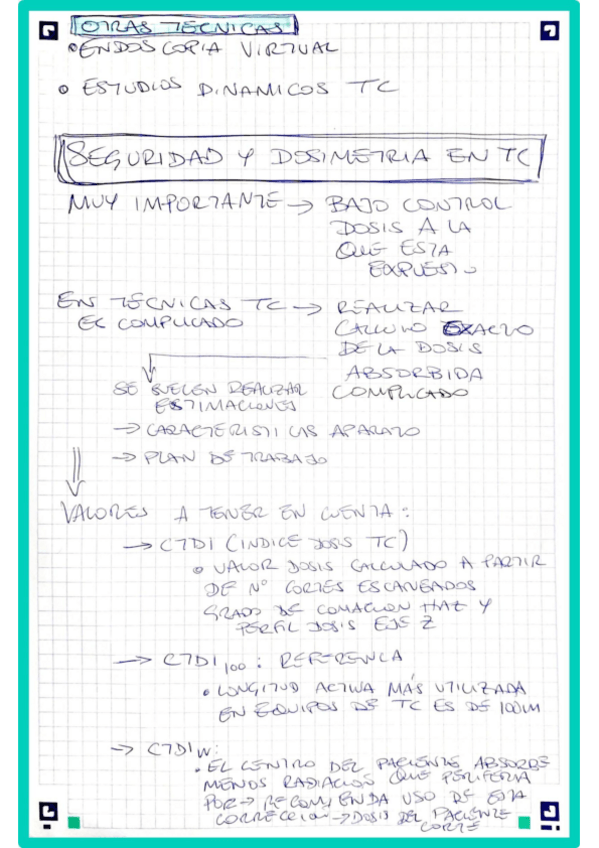 OTRAS TECNICAS
• ENDOSCOPIA VIRTUAL
• ESTUDIOS DINAMICOS TC
SEGURIDAD Y DOSIMETRIA EN TC
MUY IMPORTANTE → BAJO CONTROL
DOSIS A LA
QUE ESTA
EXPUESTO
EN TÉCNICAS TC → REALIZAR
ES COMPLICADO CALCULO EXACTO
DE LA DOSIS
ABSORBIDA
SE SUELEN REALIZAR COMPLICADO
ESTIMACIONES
→ CARACTERISTICAS APARATO
→ PLAN DE TRABAJO
VALORES A TENER EN CUENTA:
→ CTDI (INDICE DOSIS TC)
• VALOR DOSIS CALCULADO A PARTIR
DE Nº CORTES ESCANEADOS
GRADO DE HAZ Y
PERFIL DOSIS EJE Z
→ CTDI100: REFERENCIA
• LONGITUD ACTIVA MÁS UTILIZADA
EN EQUIPOS DE TC ES DE 100
→ CTDIW:
• EL CENTRO DEL PACIENTE ABSORBE
MENOS RADIACION QUE PERIFERIA
POR → RECOMIENDA USO DE ESTA
CORRECCION → DOSIS DEL PACIENTE
CORTE